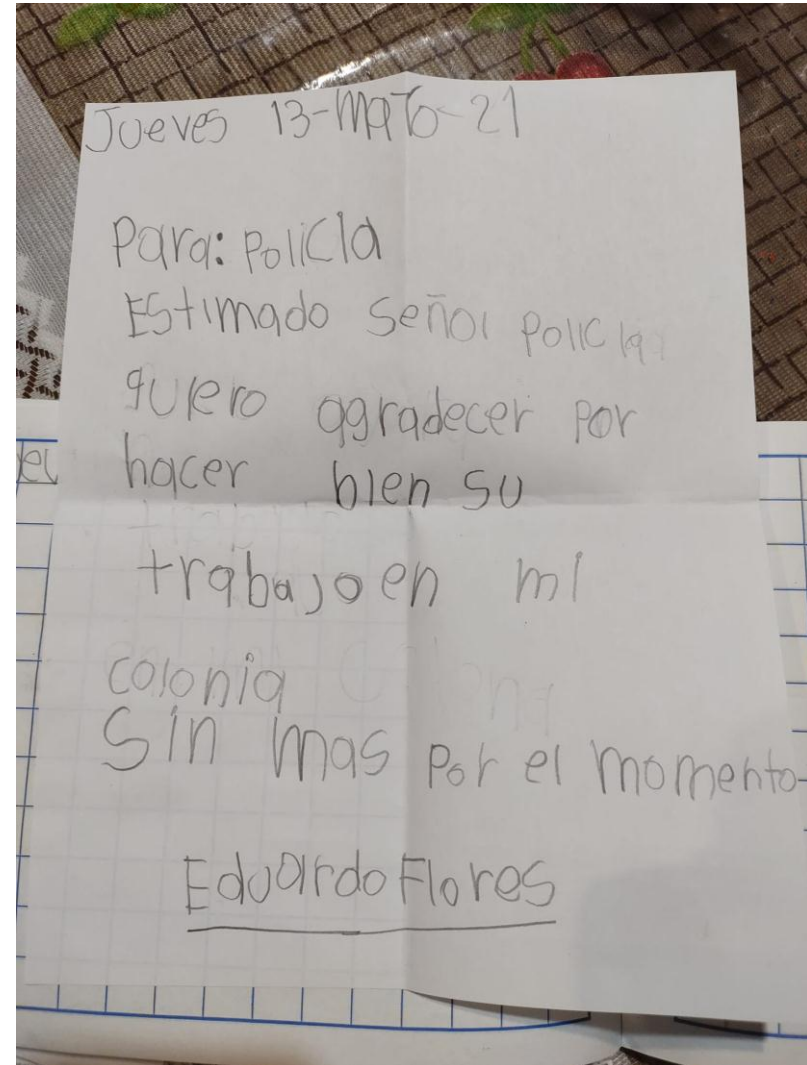 Jueves 13-Mayo-21
Para: Policia
Estimado Señor Policia
quiero agradecer por
hacer bien su
trabajo en mi
colonia
Sin mas por el momento
Eduardo Flores